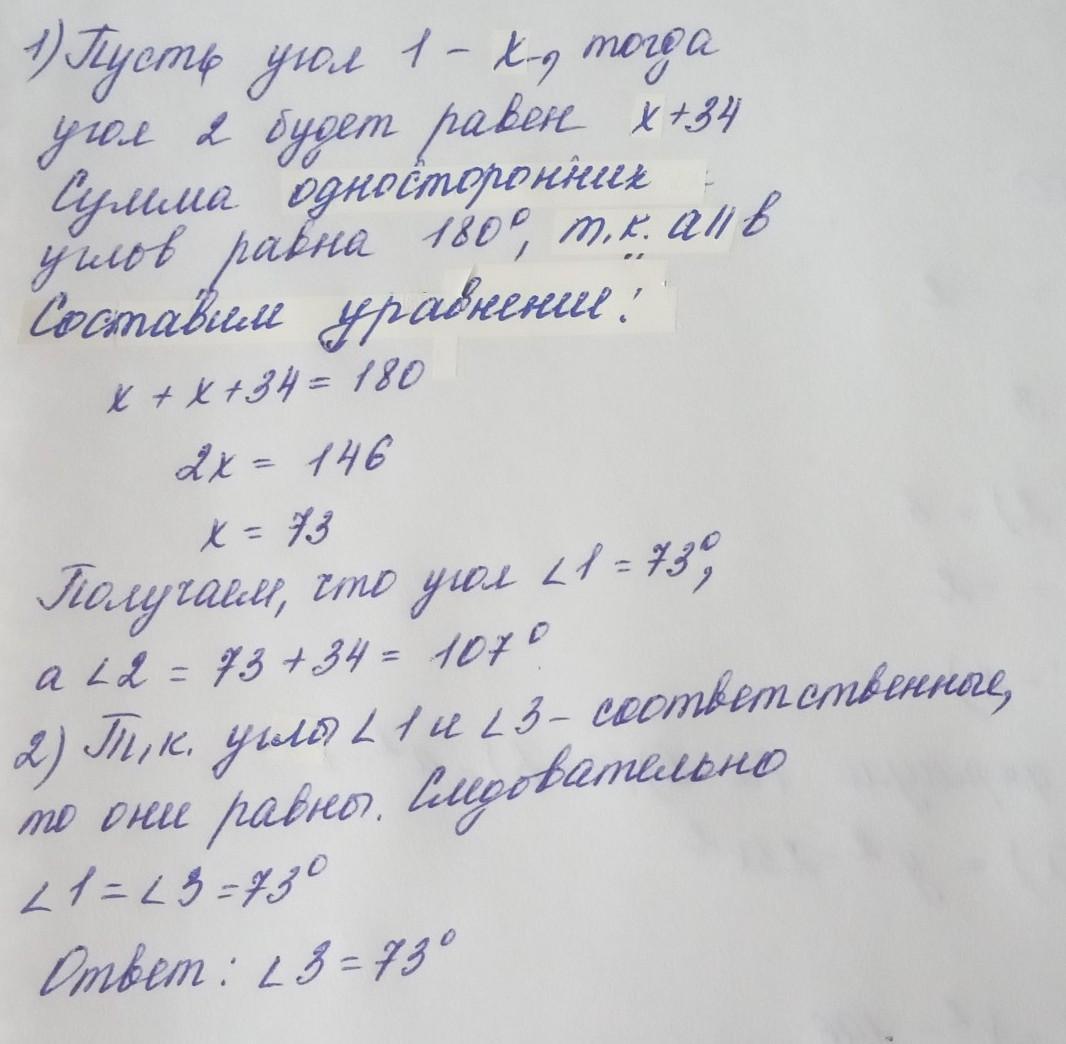 1) Пусть угол 1 - x, тогда
угол 2 будет равен x+34
Сумма односторонних
углов равна 180°, т.к. a॥в
Составим уравнение:
x + x + 34 = 180
2x = 146
x = 73
Получаем, что угол ∠1 = 73°,
а ∠2 = 73 + 34 = 107°
2) Т.к. углы ∠1 и ∠3 - соответственные,
то они равны. Следовательно
∠1 = ∠3 = 73°
Ответ: ∠3 = 73°